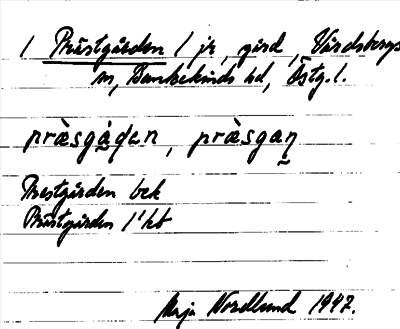 / Prästgården / jr, gård, Vårdsbergs
sn, Bankekinds hd, Östg. l.
pràsgȧ̀den, pràsgan̰
Prestgården bek
Prästgården 1' kb
Maja Nordlund 1947.